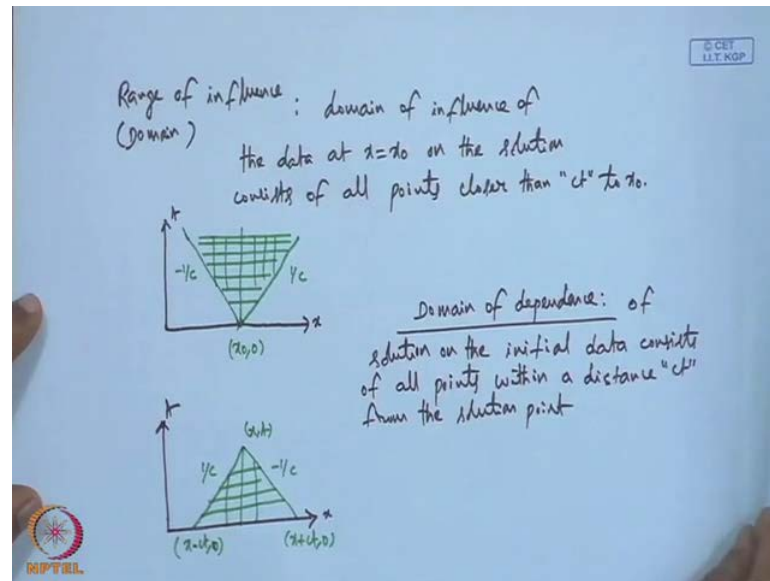 © CET
I.I.T. KGP
Range of influence : domain of influence of
(Domain)
the data at x=x0 on the solution
consists of all points closer than "ct" to x0.
t
-1/c
1/c
x
(x0,0)
Domain of dependence: of
solution on the initial data consists
of all points within a distance "ct"
from the solution point
t
(x,t)
1/c
-1/c
x
(x-ct,0)
(x+ct,0)
NPTEL